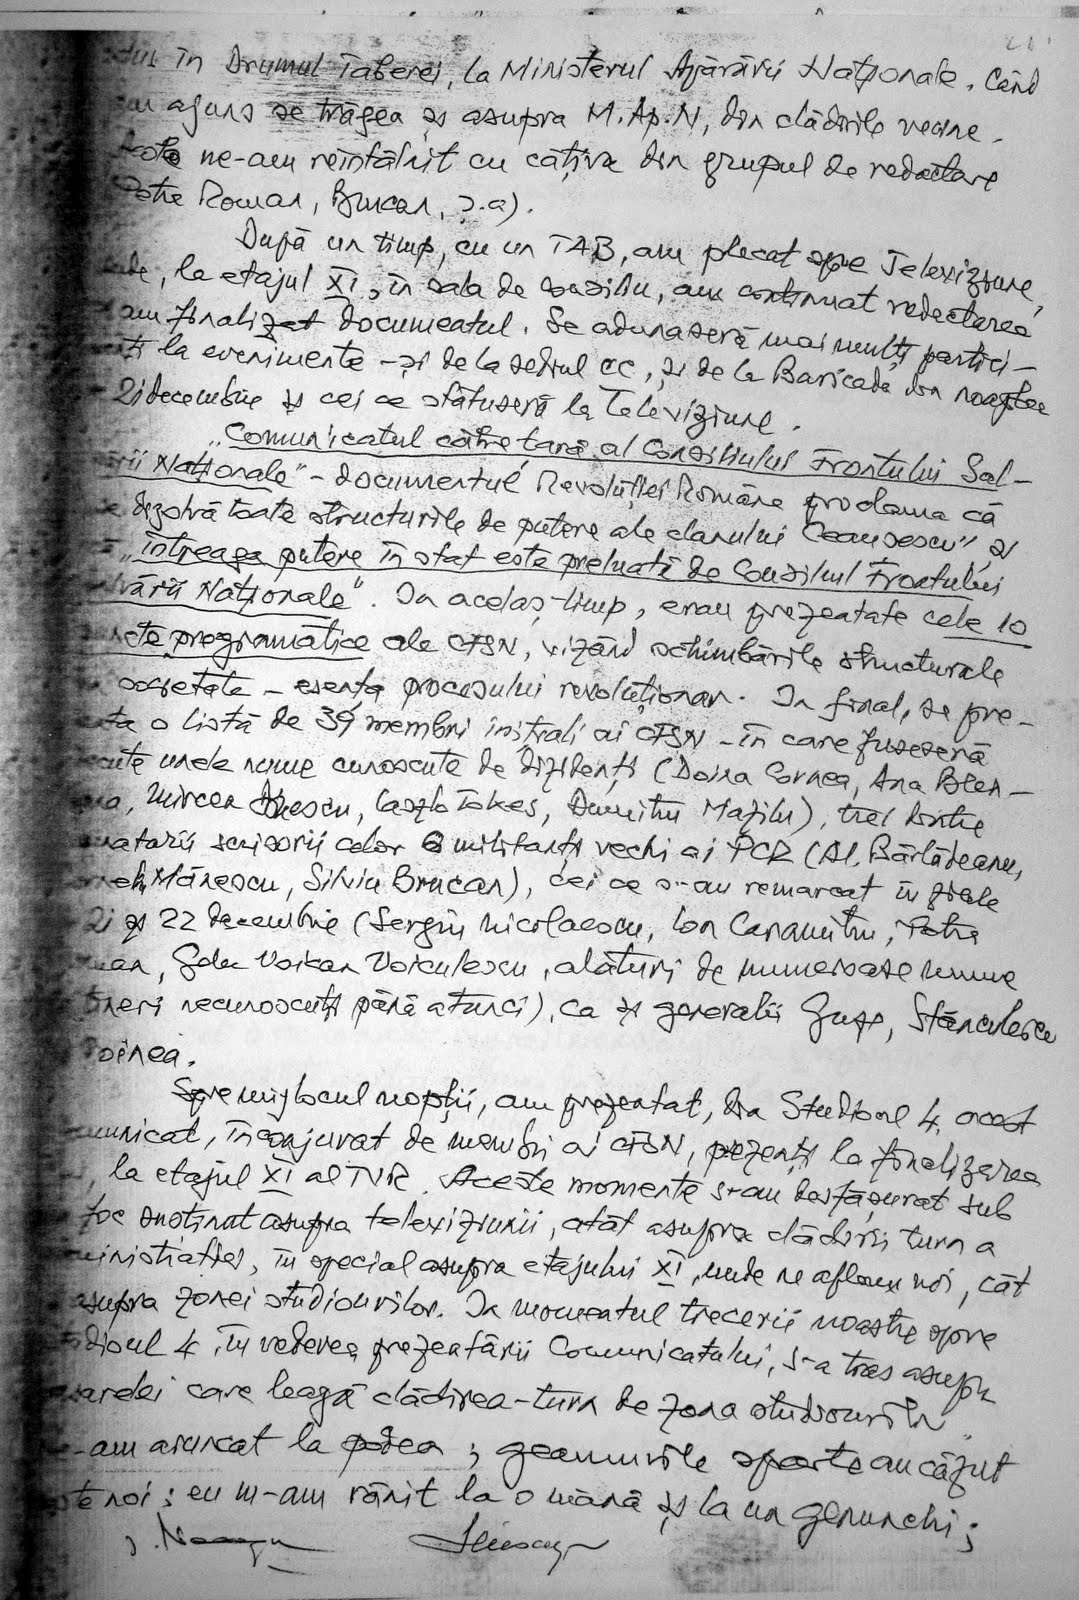 în Drumul Taberei, la Ministerul Apărării Naţionale. Când
am ajuns se trăgea şi asupra M.Ap.N, din clădirile vecine.
ne-am reîntâlnit cu câţiva din grupul de redactare
Petre Roman, Brucan, ş.a).
După un timp, cu un TAB, am plecat spre Televiziune,
unde, la etajul XI, în sala de consiliu, am continuat redactarea
am finalizat documentul. Se adunaseră mai mulţi partici-
anţi la evenimente - şi de la sediul CC, şi de la Baricada din noaptea
21 decembrie şi cei ce stătuseră la Televiziune.
"Comunicatul către ţară al Consiliului Frontului Sal-
vării Naţionale" - documentul Revoluţiei Române proclama că
se dizolvă toate structurile de putere ale clanului Ceauşescu" şi
"întreaga putere în stat este preluată de Consiliul Frontului
Salvării Naţionale". În acelaş timp, erau prezentate cele 10
puncte programatice ale CFSN, vizând schimbările structurale
în societate - esenţa procesului revoluţionar. În final, se pre-
zenta o listă de 39 membri iniţiali ai CFSN - în care fuseseră
trecute unele nume cunoscute de dizidenţi (Doina Cornea, Ana Blan-
diana, Mircea Dinescu, Laszlo Tokes, Dumitru Mazilu), trei dintre
semnatarii scrisorii celor 6 militanţi vechi ai PCR (Al. Bârlădeanu,
Corneliu Mănescu, Silviu Brucan), cei ce s-au remarcat în zilele
21 şi 22 decembrie (Sergiu Nicolaescu, Ion Caramitru, Petre
Roman, Gelu Voican Voiculescu, alături de numeroase nume
tineri necunoscuţi până atunci), ca şi generalii Guşe, Stănculescu
Voinea.
Spre mijlocul nopţii, am prezentat, din Studioul 4, acest
comunicat, înconjurat de membri ai CFSN, prezenţi la finalizarea
lui, la etajul XI al TVR. Aceste momente s-au desfăşurat sub
foc susţinut asupra televiziunii, atât asupra clădirii turn a
administraţiei, în special asupra etajului XI, unde ne aflam noi, cât
asupra zonei studiourilor. În momentul trecerii noastre spre
Studioul 4, în vederea prezentării Comunicatului, s-a tras asupra
pasarelei care leagă clădirea-turn de zona studiourilor
ne-am aruncat la podea; geamurile sparte au căzut
peste noi; eu m-am rănit la o mână şi la un genunchi;